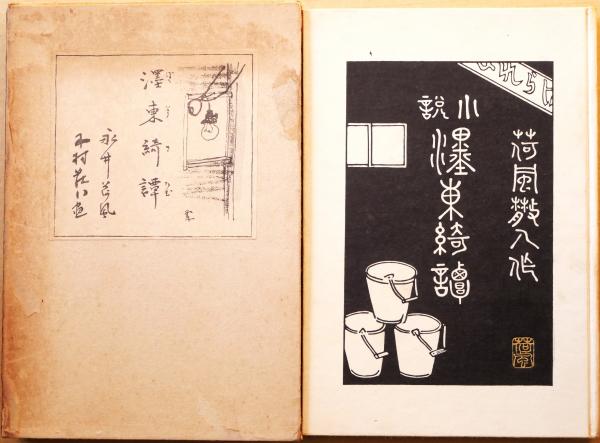 濹東綺譚
ぼくとうきだん
永井荷風
木村荘八画
荷風散人作
小説
濹東綺譚
荷風